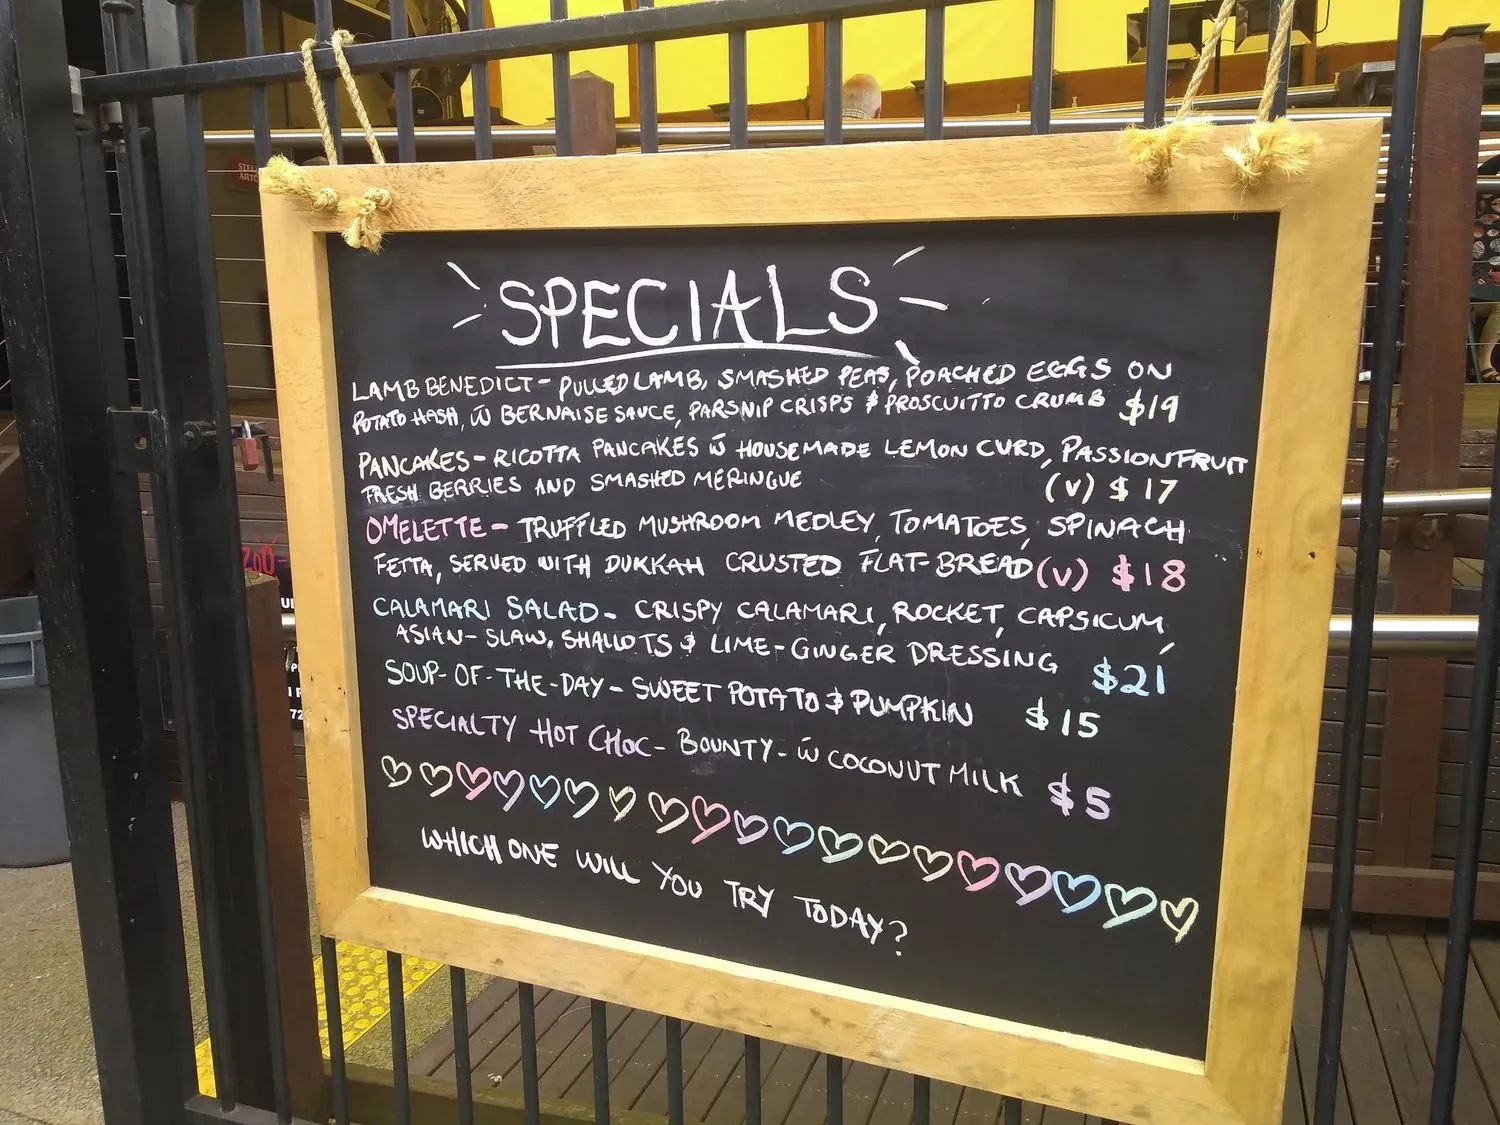 SPECIALS
LAMB BENEDICT - PULLED LAMB, SMASHED PEAS, POACHED EGGS ON
POTATO HASH, W BERNAISE SAUCE, PARSNIP CRISPS & PROSCUITTO CRUMB $19
PANCAKES - RICOTTA PANCAKES W HOUSEMADE LEMON CURD, PASSIONFRUIT
FRESH BERRIES AND SMASHED MERINGUE (V) $17
OMELETTE - TRUFFLED MUSHROOM MEDLEY, TOMATOES, SPINACH
FETTA, SERVED WITH DUKKAH CRUSTED FLAT-BREAD (V) $18
CALAMARI SALAD - CRISPY CALAMARI, ROCKET, CAPSICUM,
ASIAN-SLAW, SHALLOTS & LIME-GINGER DRESSING $21
SOUP-OF-THE-DAY - SWEET POTATO & PUMPKIN $15
SPECIALTY HOT CHOC - BOUNTY - W COCONUT MILK $5
WHICH ONE WILL YOU TRY TODAY?